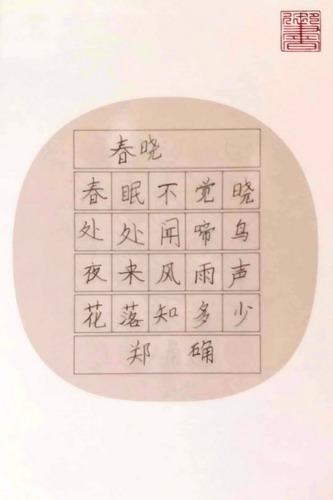 春晓
春眠不觉晓
处处闻啼鸟
夜来风雨声
花落知多少
郑确